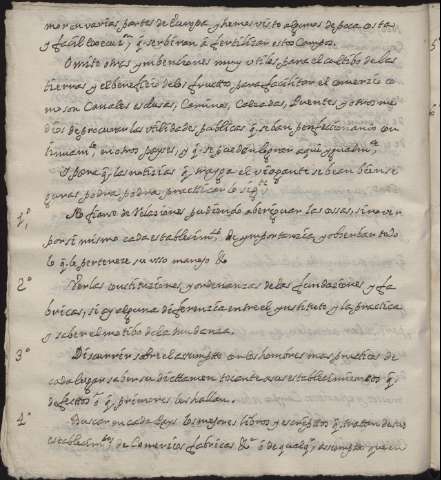 mos en varias partes de Europa y hemos visto algunos de poca costa
y facil execuⁿ q. serviran á fertilizar estos Campos.
Omite otras ymbenciones muy utiles, para el cultibo de las
tierras y el beneficio de los fructos, para facilitar el comercio co
mo son Canales esclusas, Caminos, Calzadas, Puentes y otros me
dios de procurar las utilidades publicas q. se ban perfeccionando con
tinuamᵗᵉ en otros payses, y q. se puedan lograr aqui ygualmᵗᵉ
Y para q. las noticias q. trayga el viagante sean bien se
guras podra podra practicar lo sigᵗᵉ
1º No fiarse de relaciones pudiendo aberiguar las cosas, sino ver
por si mismo cada establecimᵗᵒ de ymportancia, y observar todo
lo q. le pertenece su uso manejo &c
2º Ver las constituciones, y ordenanzas de las fundaciones y fa
bricas, si ay alguna diferencia entre el ynstituto y la practica
y saber el motibo de la mudanza.
3º Discurrir sobre el asumpto con los hombres mas practicos de
cada lugar saber su dictamen tocante a sus establecimientos q.
defectos ó q. primores los hallan.
4º Buscar en cada Pays los mejores libros y escriptos q. tratan de sus
establecimᵗᵒˢ de Comercios fabricas &ª ó de qualqª asumpto que en